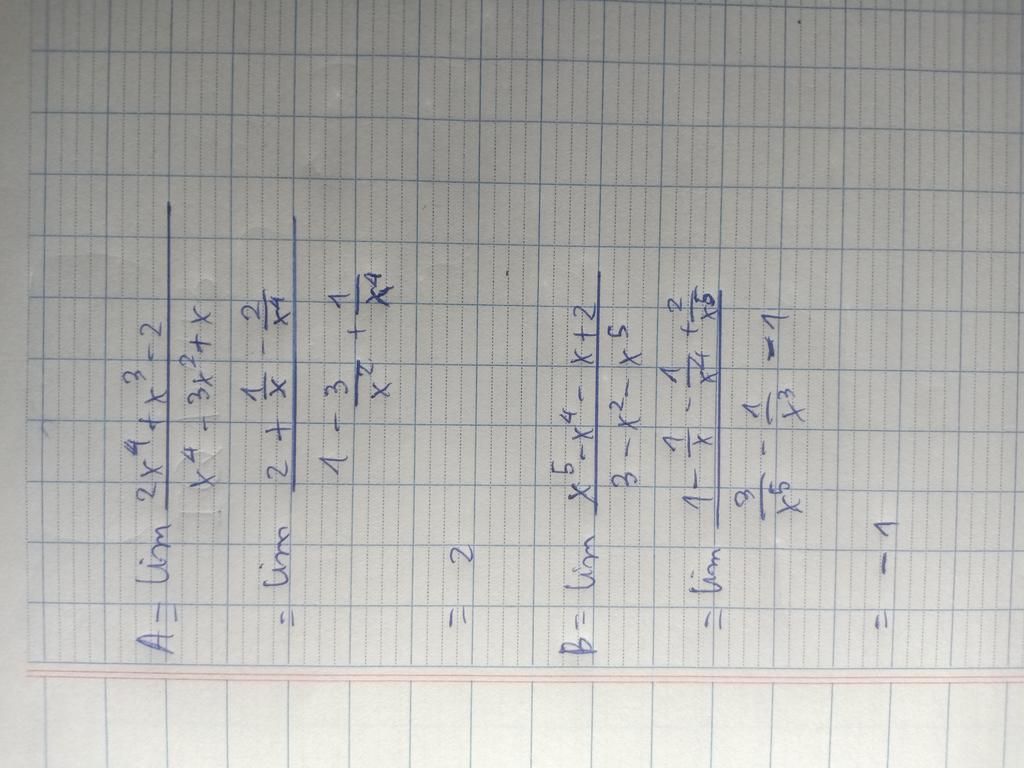 A = lim 2x⁴ + x³ - 2
x⁴ - 3x² + x
= lim 2 + 1/x - 2/x⁴
1 - 3/x² + 1/x⁴
= 2
B = lim x⁵ - x⁴ - x + 2
3 - x² - x⁵
= lim 1 - 1/x - 1/x⁴ + 2/x⁵
3/x⁵ - 1/x³ - 1
= - 1